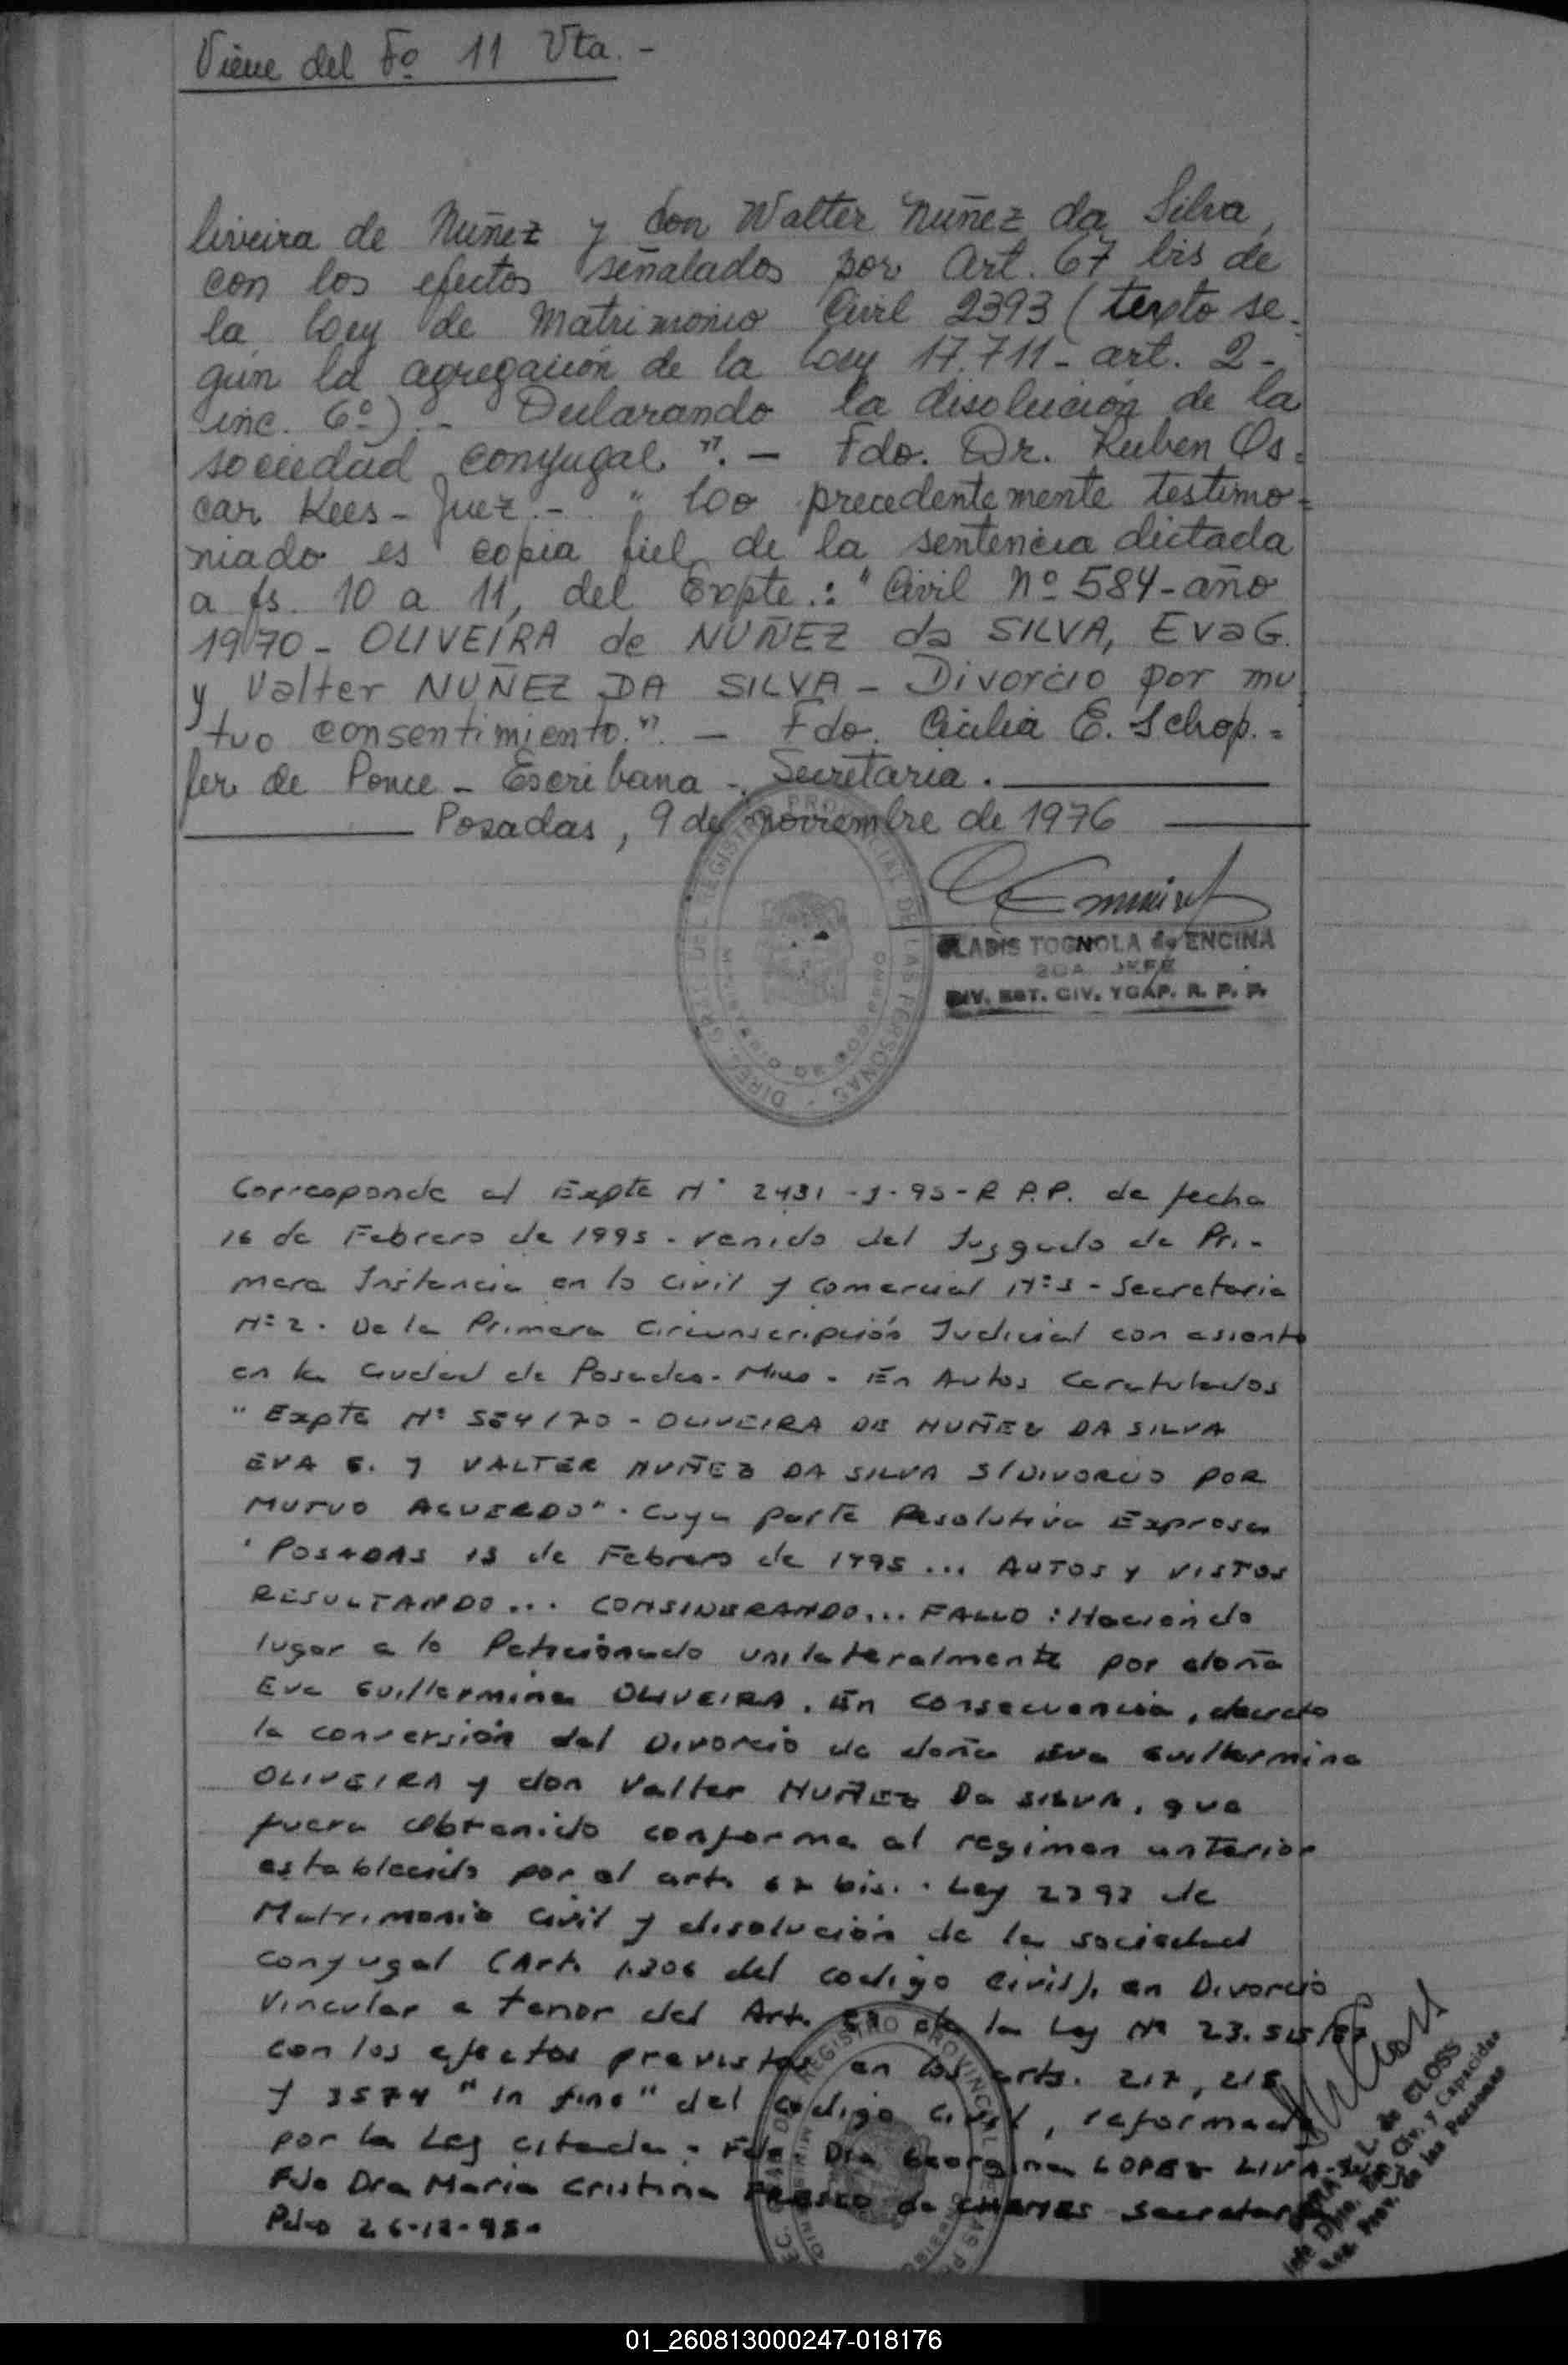 Viene del Fº 11 Vta. -
liveira de Nuñez y don Walter Nuñez da Silva,
con los efectos señalados por Art. 67 bis de
la Ley de Matrimonio Civil 2393 (texto se-
gún la agregación de la Ley 17.711 - art. 2 -
inc. 6º) .- Declarando la disolución de la
sociedad conyugal ". — Fdo. Dr. Ruben Os=
car Kees - Juez .- " Lo precedentemente testimo=
niado es copia fiel de la sentencia dictada
a fs. 10 a 11, del Expte.: "Civil Nº 584 - año
1970 - OLIVEIRA de NUÑEZ da SILVA, Eva G.
y Valter NUÑEZ DA SILVA - Divorcio por mu
tuo consentimiento." . — Fdo. Cecilia E. Schap.=
fer de Ponce - Escribana - Secretaria .
Posadas, 9 de noviembre de 1976
GLADIS TOGNOLA de ENCINA
2DA. JEFE
DIV. EST. CIV. Y CAP. R. P. P.
DIREC. GRAL DEL REGISTRO PROVINCIAL DE LAS PERSONAS
MINISTERIO DE GOBIERNO
Corresponde al Expte Nº 2431 - J - 95 - R P.P. de fecha
16 de Febrero de 1995 - venido del Juzgado de Pri-
mera Instancia en lo Civil y Comercial Nº - Secretaria
Nº 2 . De la Primera Circunscripción Judicial con asiento
en la Ciudad de Posadas - Mnes - En Autos Caratulados
"Expte Nº 584/70 - OLIVEIRA DE NUÑEZ DA SILVA
EVA G. Y VALTER NUÑEZ DA SILVA S/DIVORCIO POR
MUTUO ACUERDO" . Cuya parte Resolutiva Expresa
"POSADAS 13 de Febrero de 1995 ... AUTOS Y VISTOS
RESULTANDO ... CONSIDERANDO ... FALLO : Haciendo
lugar a lo Peticionado unilateralmente por doña
Eva Guillermina OLIVEIRA . En Consecuencia , decreto
la conversión del Divorcio de doña Eva Guillermina
OLIVEIRA y don Valter NUÑEZ Da SILVA , que
fuera obtenido conforme al regimen anterior
establecido por el art. 67 bis. . Ley 2393 de
Matrimonio Civil y disolución de la sociedad
conyugal (Art. 1.306 del codigo Civil), en Divorcio
Vincular a tenor del Art. de la Ley Nº 23.515/87
con los efectos previstos en los arts. 217, 218
y 3574 "in fine" del codigo Civil , reformado
por la Ley citada . Fdo. Dra Georgina LOPEZ LIVA - Juez
Fdo Dra Maria Cristina FRESCO de CHEMES Secretaria
Pdas 26-12-95 -
L. de GLOSS
Civ. y Capacidad
Reg. Prov. de las Personas
REGISTRO PROVINCIAL
01_260813000247-018176